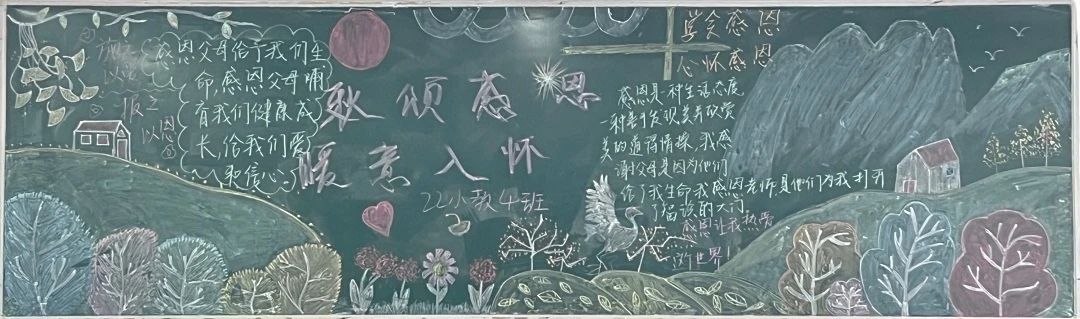 感恩父母给了我们生
命,感恩父母哺
育我们健康成
长,给我们爱
和信心
报之
以恩
秋颂感恩
暖意入怀
22小教4班
学会感恩
心怀感恩
感恩是一种生活态度
一种善于发现美并欣赏
美的道德情操,我感
谢父母是因为他们
给了我生命我感恩老师是他们为我打开
了知识的大门
感恩让我热爱
这世界!